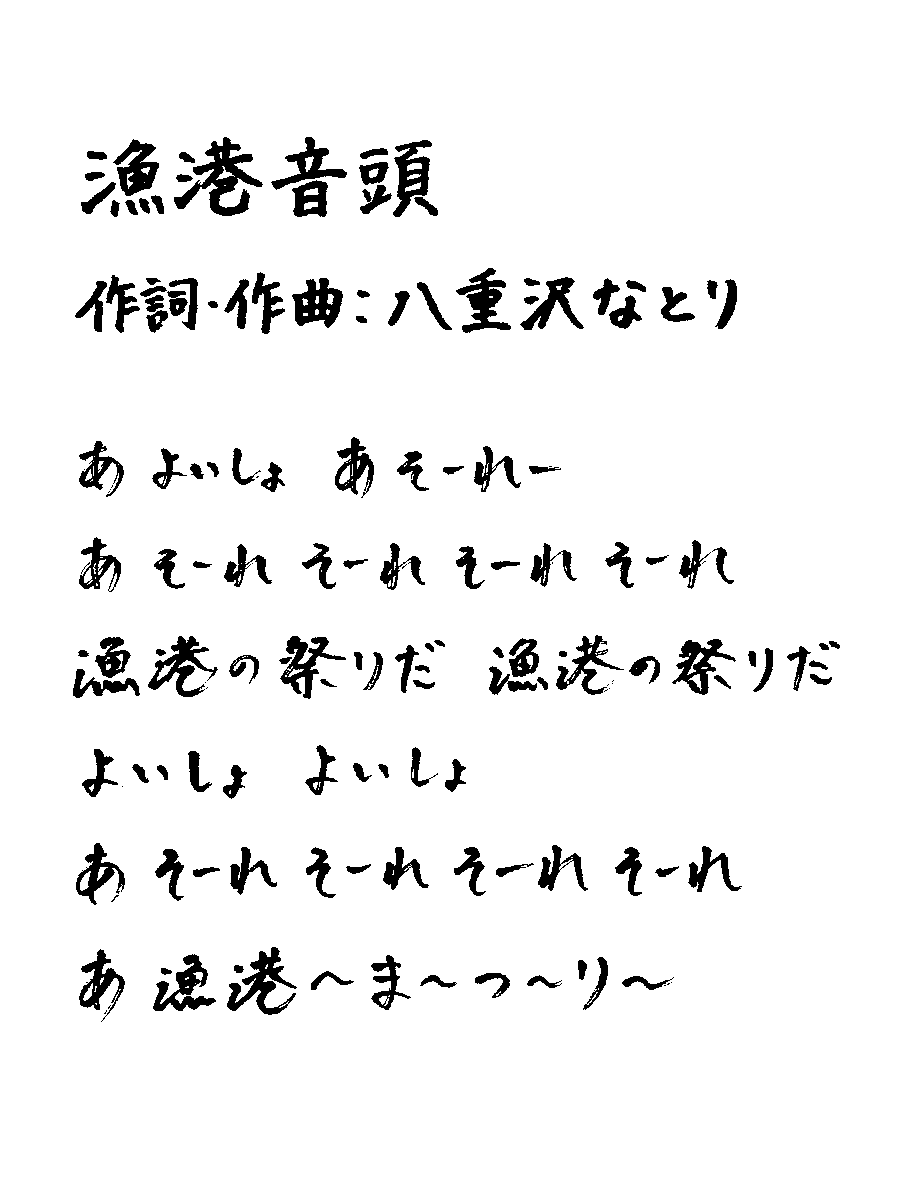 漁港音頭
作詞・作曲：八重沢なとり
あ よいしょ あ そーれー
あ そーれ そーれ そーれ そーれ
漁港の祭りだ 漁港の祭りだ
よいしょ よいしょ
あ そーれ そーれ そーれ そーれ
あ 漁港〜ま〜つ〜り〜